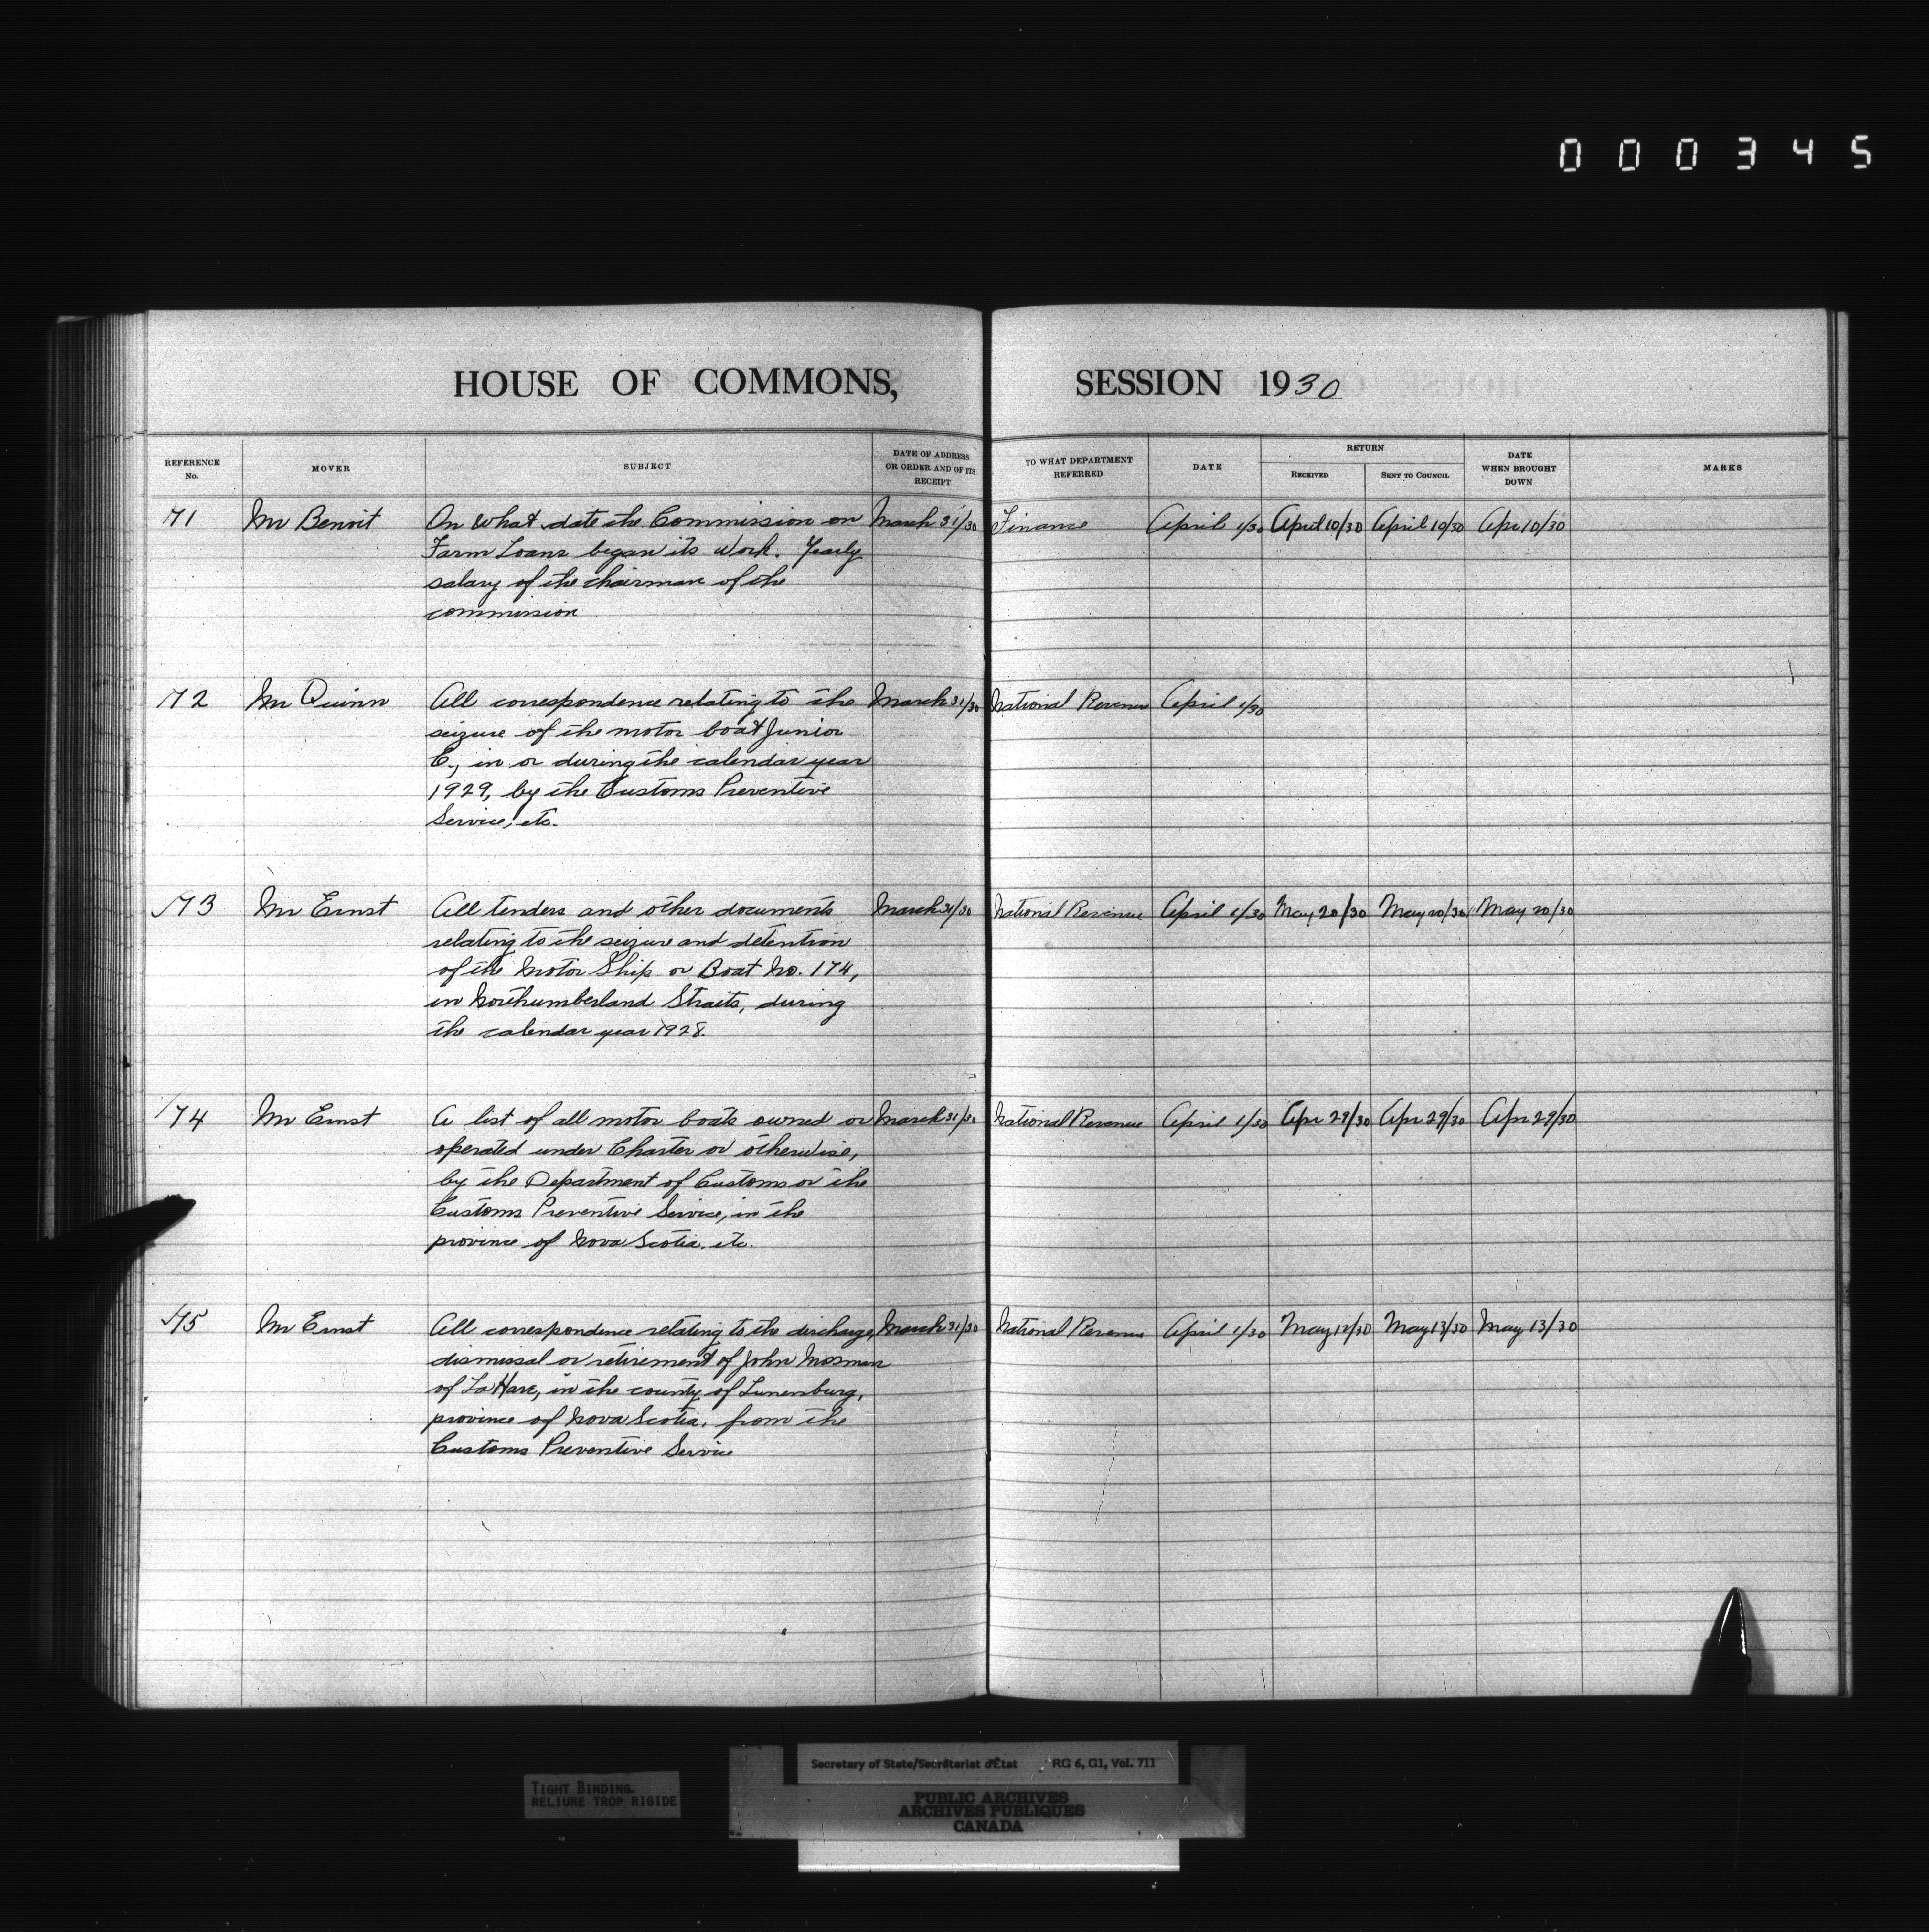 000345
HOUSE OF COMMONS, SESSION 1930
REFERENCE No.
MOVER
SUBJECT
DATE OF ADDRESS OR ORDER AND OF ITS RECEIPT
TO WHAT DEPARTMENT REFERRED
DATE
RETURN
RECEIVED
SENT TO COUNCIL
DATE WHEN BROUGHT DOWN
MARKS
71 Mr Benoit On what date the Commission on March 31/30 Finance April 1/30 April 10/30 April 10/30 Apr 10/30
Farm Loans began its work. Yearly
salary of the chairman of the
commission
72 Mr Quinn All correspondence relating to the March 31/30 National Revenue April 1/30
seizure of the motor boat Junior
E., in or during the calendar year
1929, by the Customs Preventive
Service, etc.
173 Mr Ernst All tenders and other documents March 31/30 National Revenue April 1/30 May 20/30 May 20/30 May 20/30
relating to the seizure and detention
of the Motor Ship or Boat No. 174,
in Northumberland Straits, during
the calendar year 1928.
174 Mr Ernst A list of all motor boats owned or March 31/30 National Revenue April 1/30 Apr 29/30 Apr 29/30 Apr 29/30
operated under Charter or otherwise,
by the Department of Customs or the
Customs Preventive Service, in the
province of Nova Scotia. etc.
175 Mr Ernst All correspondence relating to the discharge, March 31/30 National Revenue April 1/30 May 12/30 May 13/30 May 13/30
dismissal or retirement of John Mosman
of La Have, in the county of Lunenburg,
province of Nova Scotia, from the
Customs Preventive Service
TIGHT BINDING
RELIURE TROP RIGIDE
Secretary of State/Secrétariat d'État RG 6, G1, Vol. 711
PUBLIC ARCHIVES
ARCHIVES PUBLIQUES
CANADA